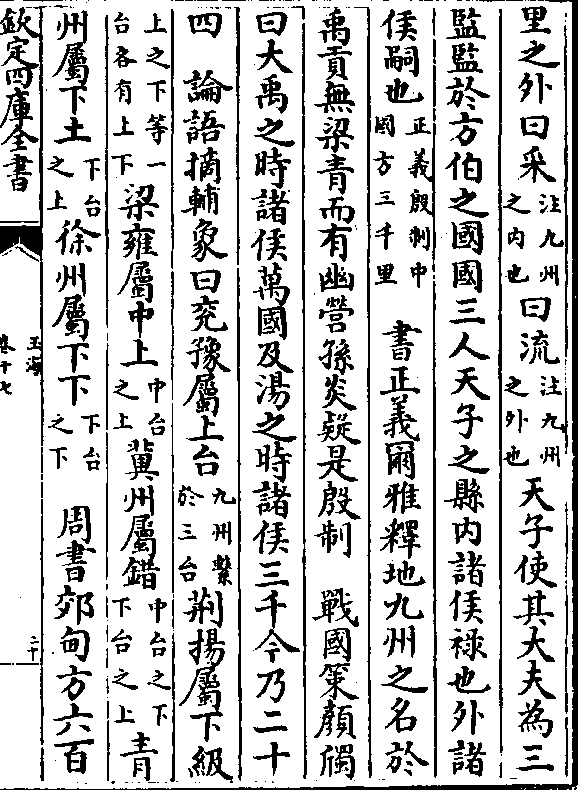 里之外曰采注九州之内也曰流注九州之外也天子使其大夫為三
監監於方伯之國國三人天子之縣内諸侯禄也外諸
侯嗣也正義殷制中國方三千里 書正義爾雅釋地九州之名於
禹貢無梁青而有幽營孫炎疑是殷制 戰國策顏斶
曰大禹之時諸侯萬國及湯之時諸侯三千今乃二十
四 論語摘輔象曰兖豫屬上台九州繫於三台荆揚屬下級
上之下等一台各有上下梁雍屬中上中台之上冀州屬錯中台之下下台之上青
州屬下土下台之上徐州屬下下下台之下 周書郊甸方六百
欽定四庫全書
玉海
卷十七
二十